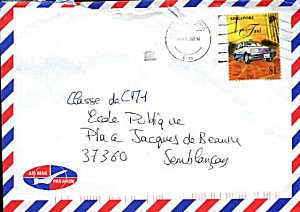 SINGAPORE
Taxi
$1
Classe de CM1
Ecole Publique
Place Jacques de Beaune
37360 Semblançay
AIR MAIL
PAR AVION